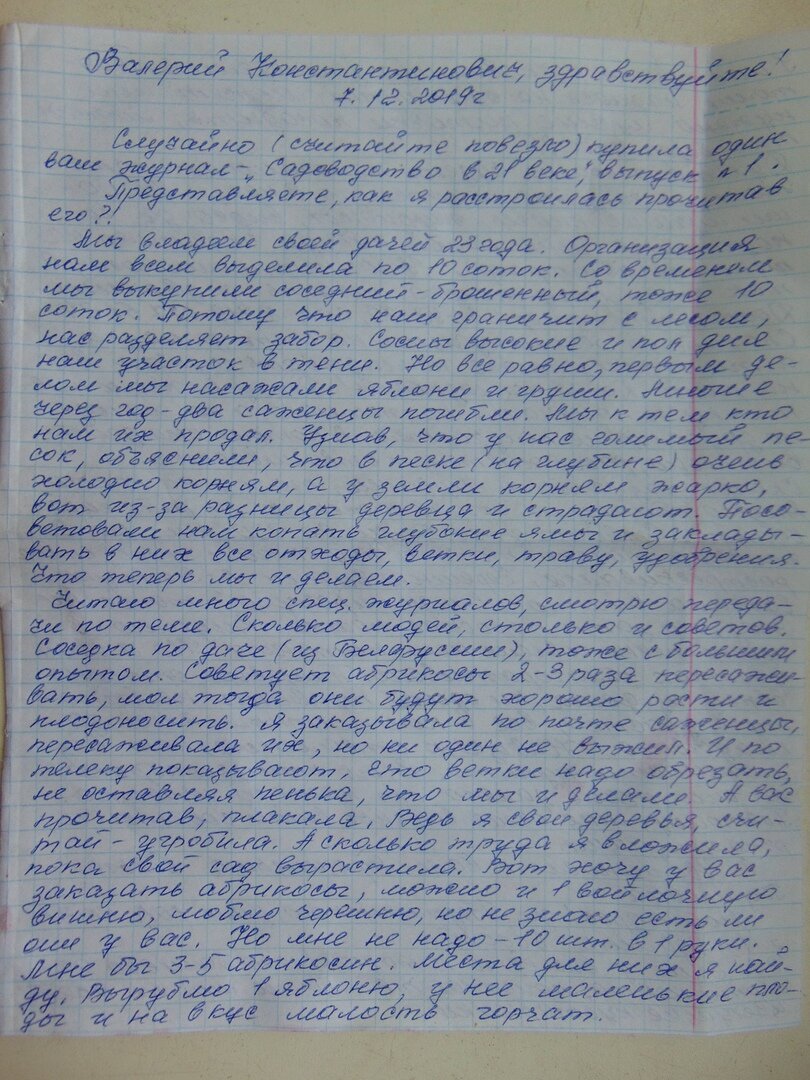 Валерий Константинович, здравствуйте!
7.12.2019г
Случайно (считайте повезло) купила один
ваш журнал - „Садоводство в 21 веке", выпуск №1.
Представляете, как я расстроилась прочитав
его?!
Мы владеем своей дачей 23 года. Организация
нам всем выделила по 10 соток. Со временем
мы выкупили соседний - брошенный, тоже 10
соток. Потому что наш граничит с лесом,
нас разделяет забор. Сосны высокие и пол дня
наш участок в тени. Но все равно, первым де-
лом мы насажали яблони и груши. Многие
через год-два саженцы погибли. Мы к тем кто
нам их продал. Узнав, что у нас голимый пе-
сок, объяснили, что в песке (на глубине) очень
холодно корням, а у земли корням жарко,
вот из-за разницы деревца и страдают. Посо-
ветовали нам копать глубокие ямы и заклады-
вать в них все отходы, ветки, траву, удобрения.
Что теперь мы и делаем.
Читаю много спец. журналов, смотрю переда-
чи по теме. Сколько людей, столько и советов.
Соседка по даче (из Беларуссии), тоже с большим
опытом. Советует абрикосы 2-3 раза пересажи-
вать, мол тогда они будут хорошо расти и
плодоносить. Я заказывала по почте саженцы,
пересаживала их, но ни один не выжил. И по
телеку показывают, что ветки надо обрезать,
не оставляя пенька, что мы и делали. А вас
прочитав, плакала. Ведь я свои деревья, счи-
тай - угробила. А сколько труда я вложила,
пока свой сад вырастила. Вот хочу у вас
заказать абрикосы, можно и 1 войлочную
вишню, люблю черешню, но не знаю есть ли
они у вас. Но мне не надо - 10 шт. в 1 руки.
Мне бы 3-5 абрикосин. Места для них я най-
ду. Вырублю 1 яблоню, у нее маленькие пло-
ды и на вкус малость горчат.